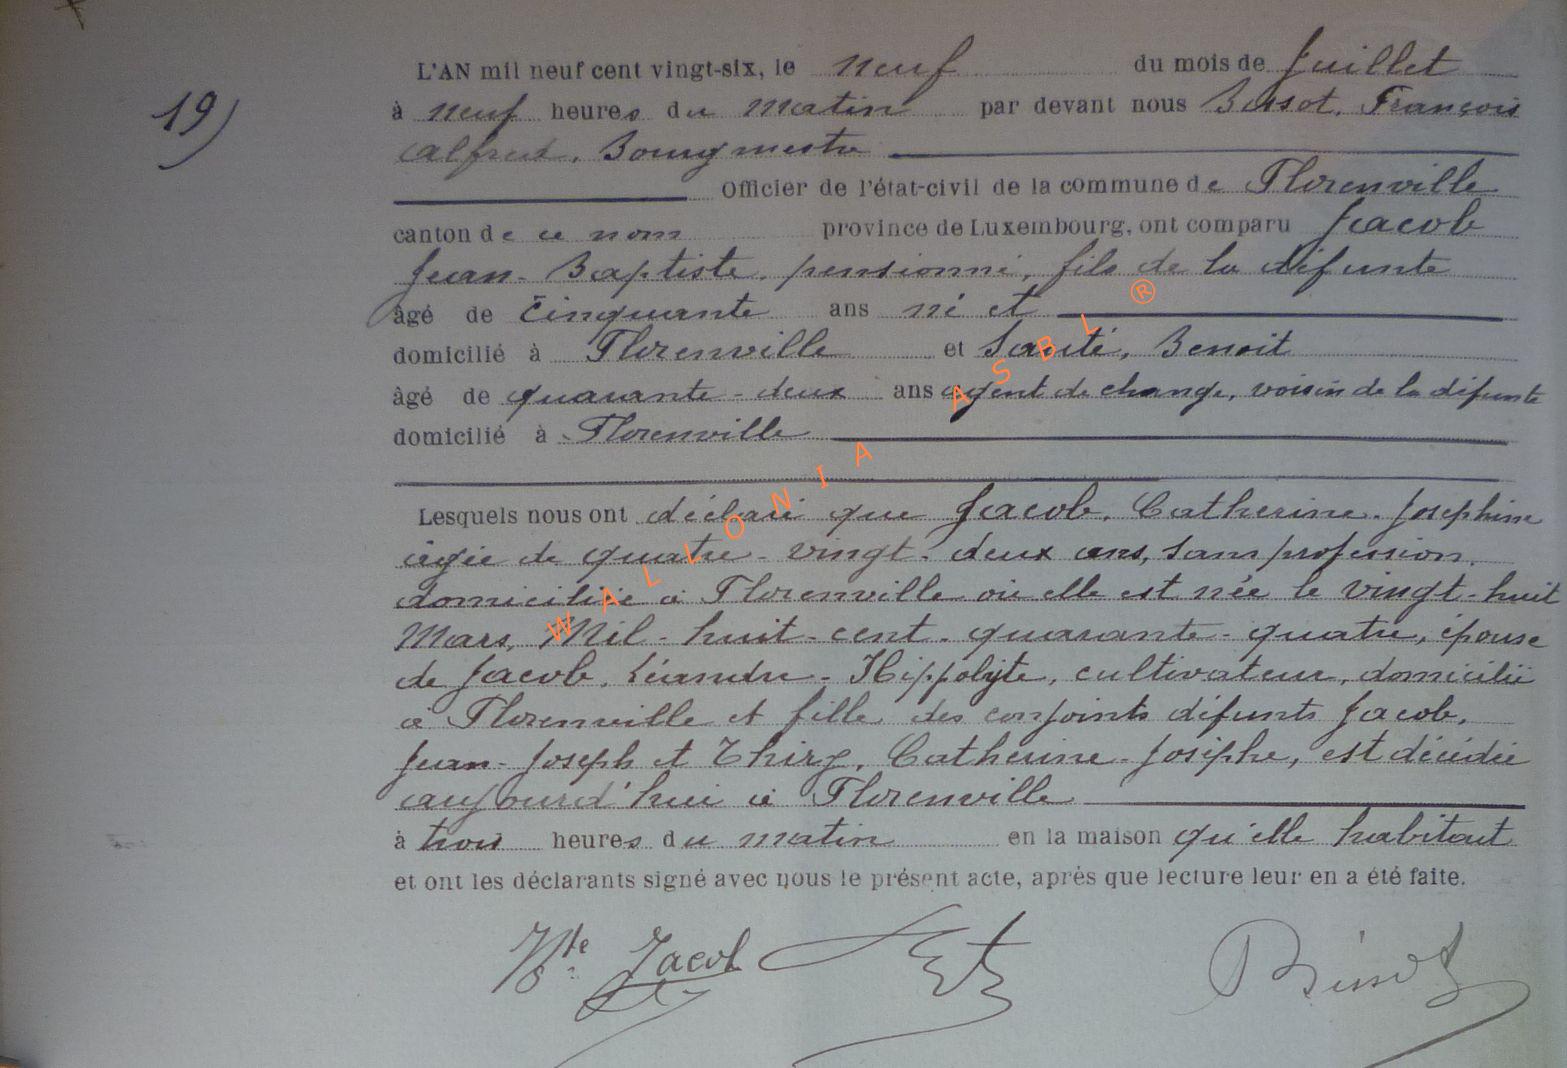 19)
L'AN mil neuf cent vingt-six, le neuf du mois de Juillet
à neuf heures du matin par devant nous Bossot, François
Alfred, Bourgmestre
Officier de l'état-civil de la commune de Florenville
canton de ce nom province de Luxembourg, ont comparu Jacob
Jean-Baptiste, pensionné, fils de la défunte
âgé de cinquante ans né et
domicilié à Florenville et Benoit
âgé de quarante-deux ans agent de change, voisin de la défunte
domicilié à Florenville
Lesquels nous ont déclaré que Jacob, Catherine-Josephine
âgée de quatre-vingt-deux ans, sans profession,
domiciliée à Florenville où elle est née le vingt-huit
Mars, Mil-huit-cent-quarante-quatre, épouse
de Jacob, Léandre-Hippolyte, cultivateur, domicilié
à Florenville et fille des conjoints défunts Jacob,
Jean-Joseph et Thiry, Catherine-Josèphe, est décédée
aujourd'hui à Florenville
à trois heures du matin en la maison qu'elle habitait
et ont les déclarants signé avec nous le présent acte, après que lecture leur en a été faite.
Jacob
WALLONIA ASBL ®